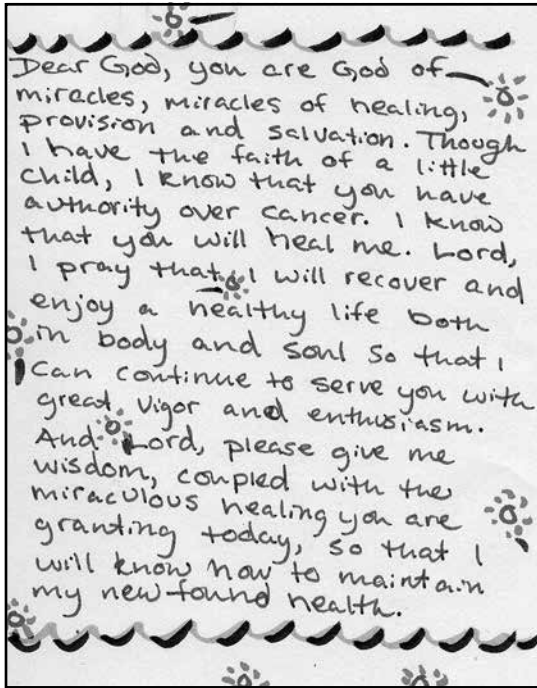 Dear God, you are God of
miracles, miracles of healing,
provision and salvation. Though
I have the faith of a little
child, I know that you have
authority over cancer. I know
that you will heal me. Lord,
I pray that I will recover and
enjoy a healthy life both
in body and soul so that I
can continue to serve you with
great vigor and enthusiasm.
And Lord, please give me
wisdom, coupled with the
miraculous healing you are
granting today, so that I
will know how to maintain
my newfound health.